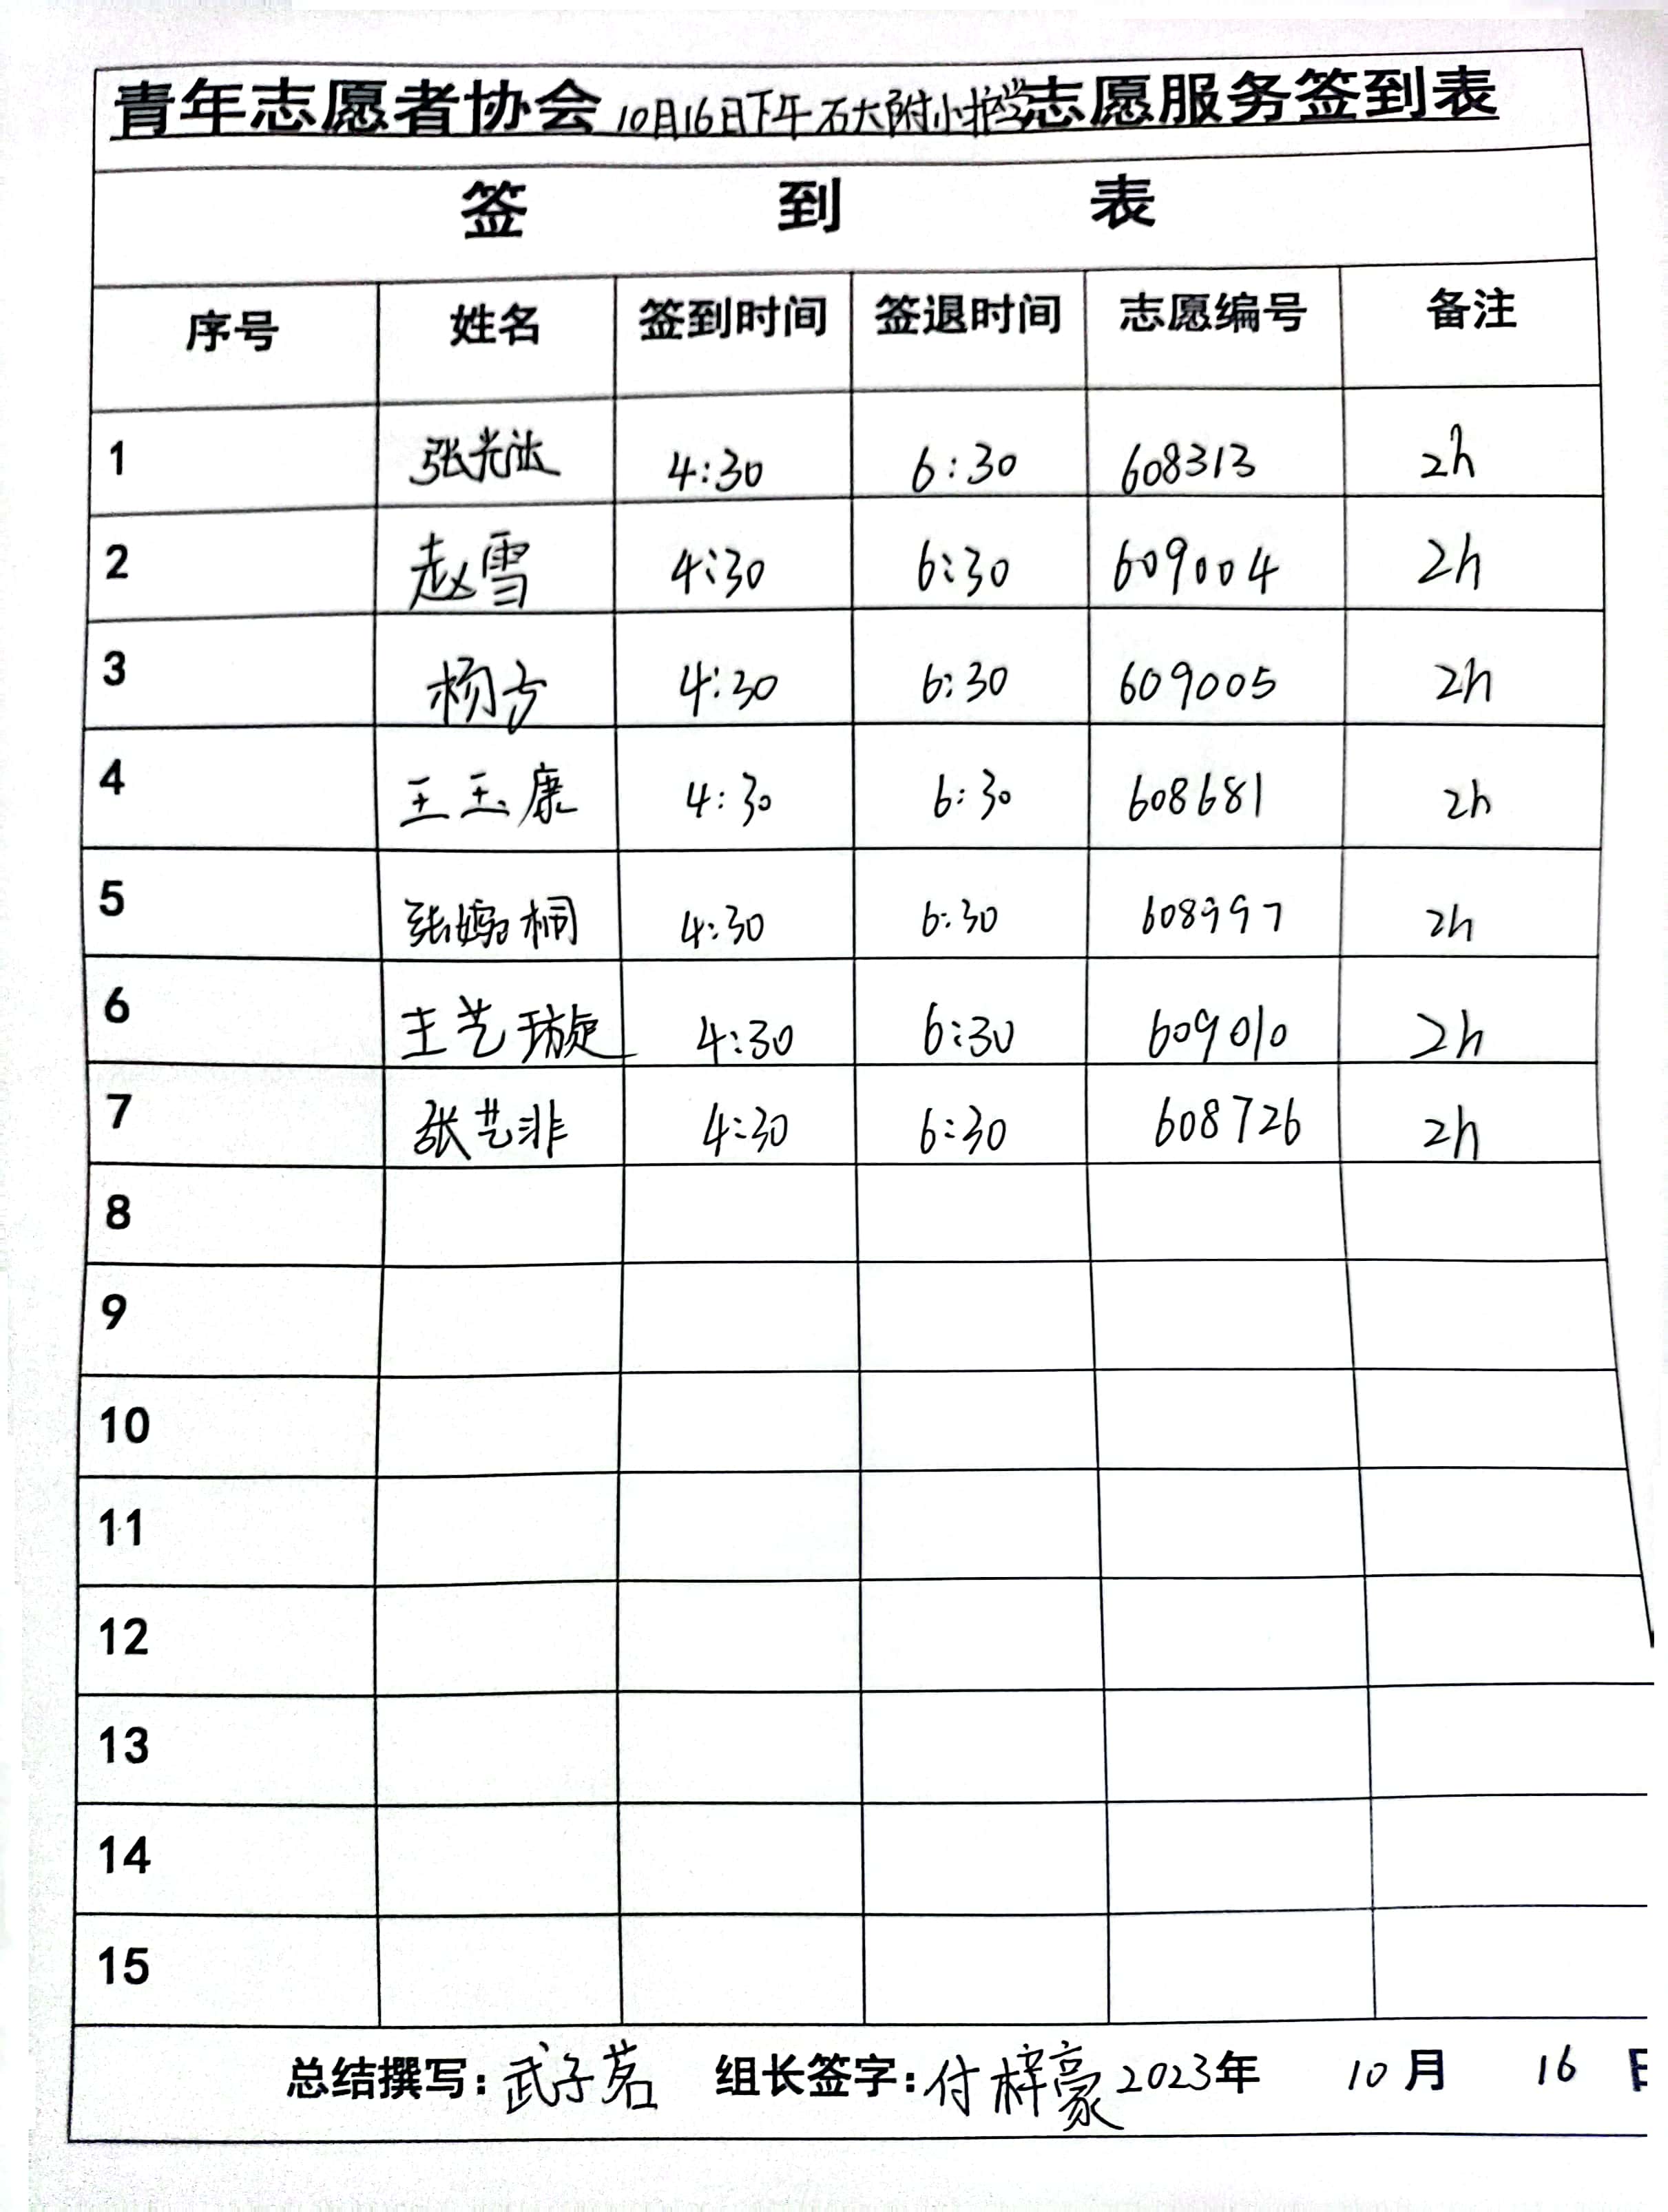 青年志愿者协会10月16日下午石大附小护学志愿服务签到表
签 到 表
序号 姓名 签到时间 签退时间 志愿编号 备注
1 张光法 4:30 6:30 608313 2h
2 赵雪 4:30 6:30 609004 2h
3 杨方 4:30 6:30 609005 2h
4 王玉康 4:30 6:30 608681 2h
5 4:30 6:30 608997 2h
6 王艺璇 4:30 6:30 609010 2h
7 张艺非 4:30 6:30 608726 2h
8
9
10
11
12
13
14
15
总结撰写:武子茗 组长签字:付梓豪 2023年 10月 16日